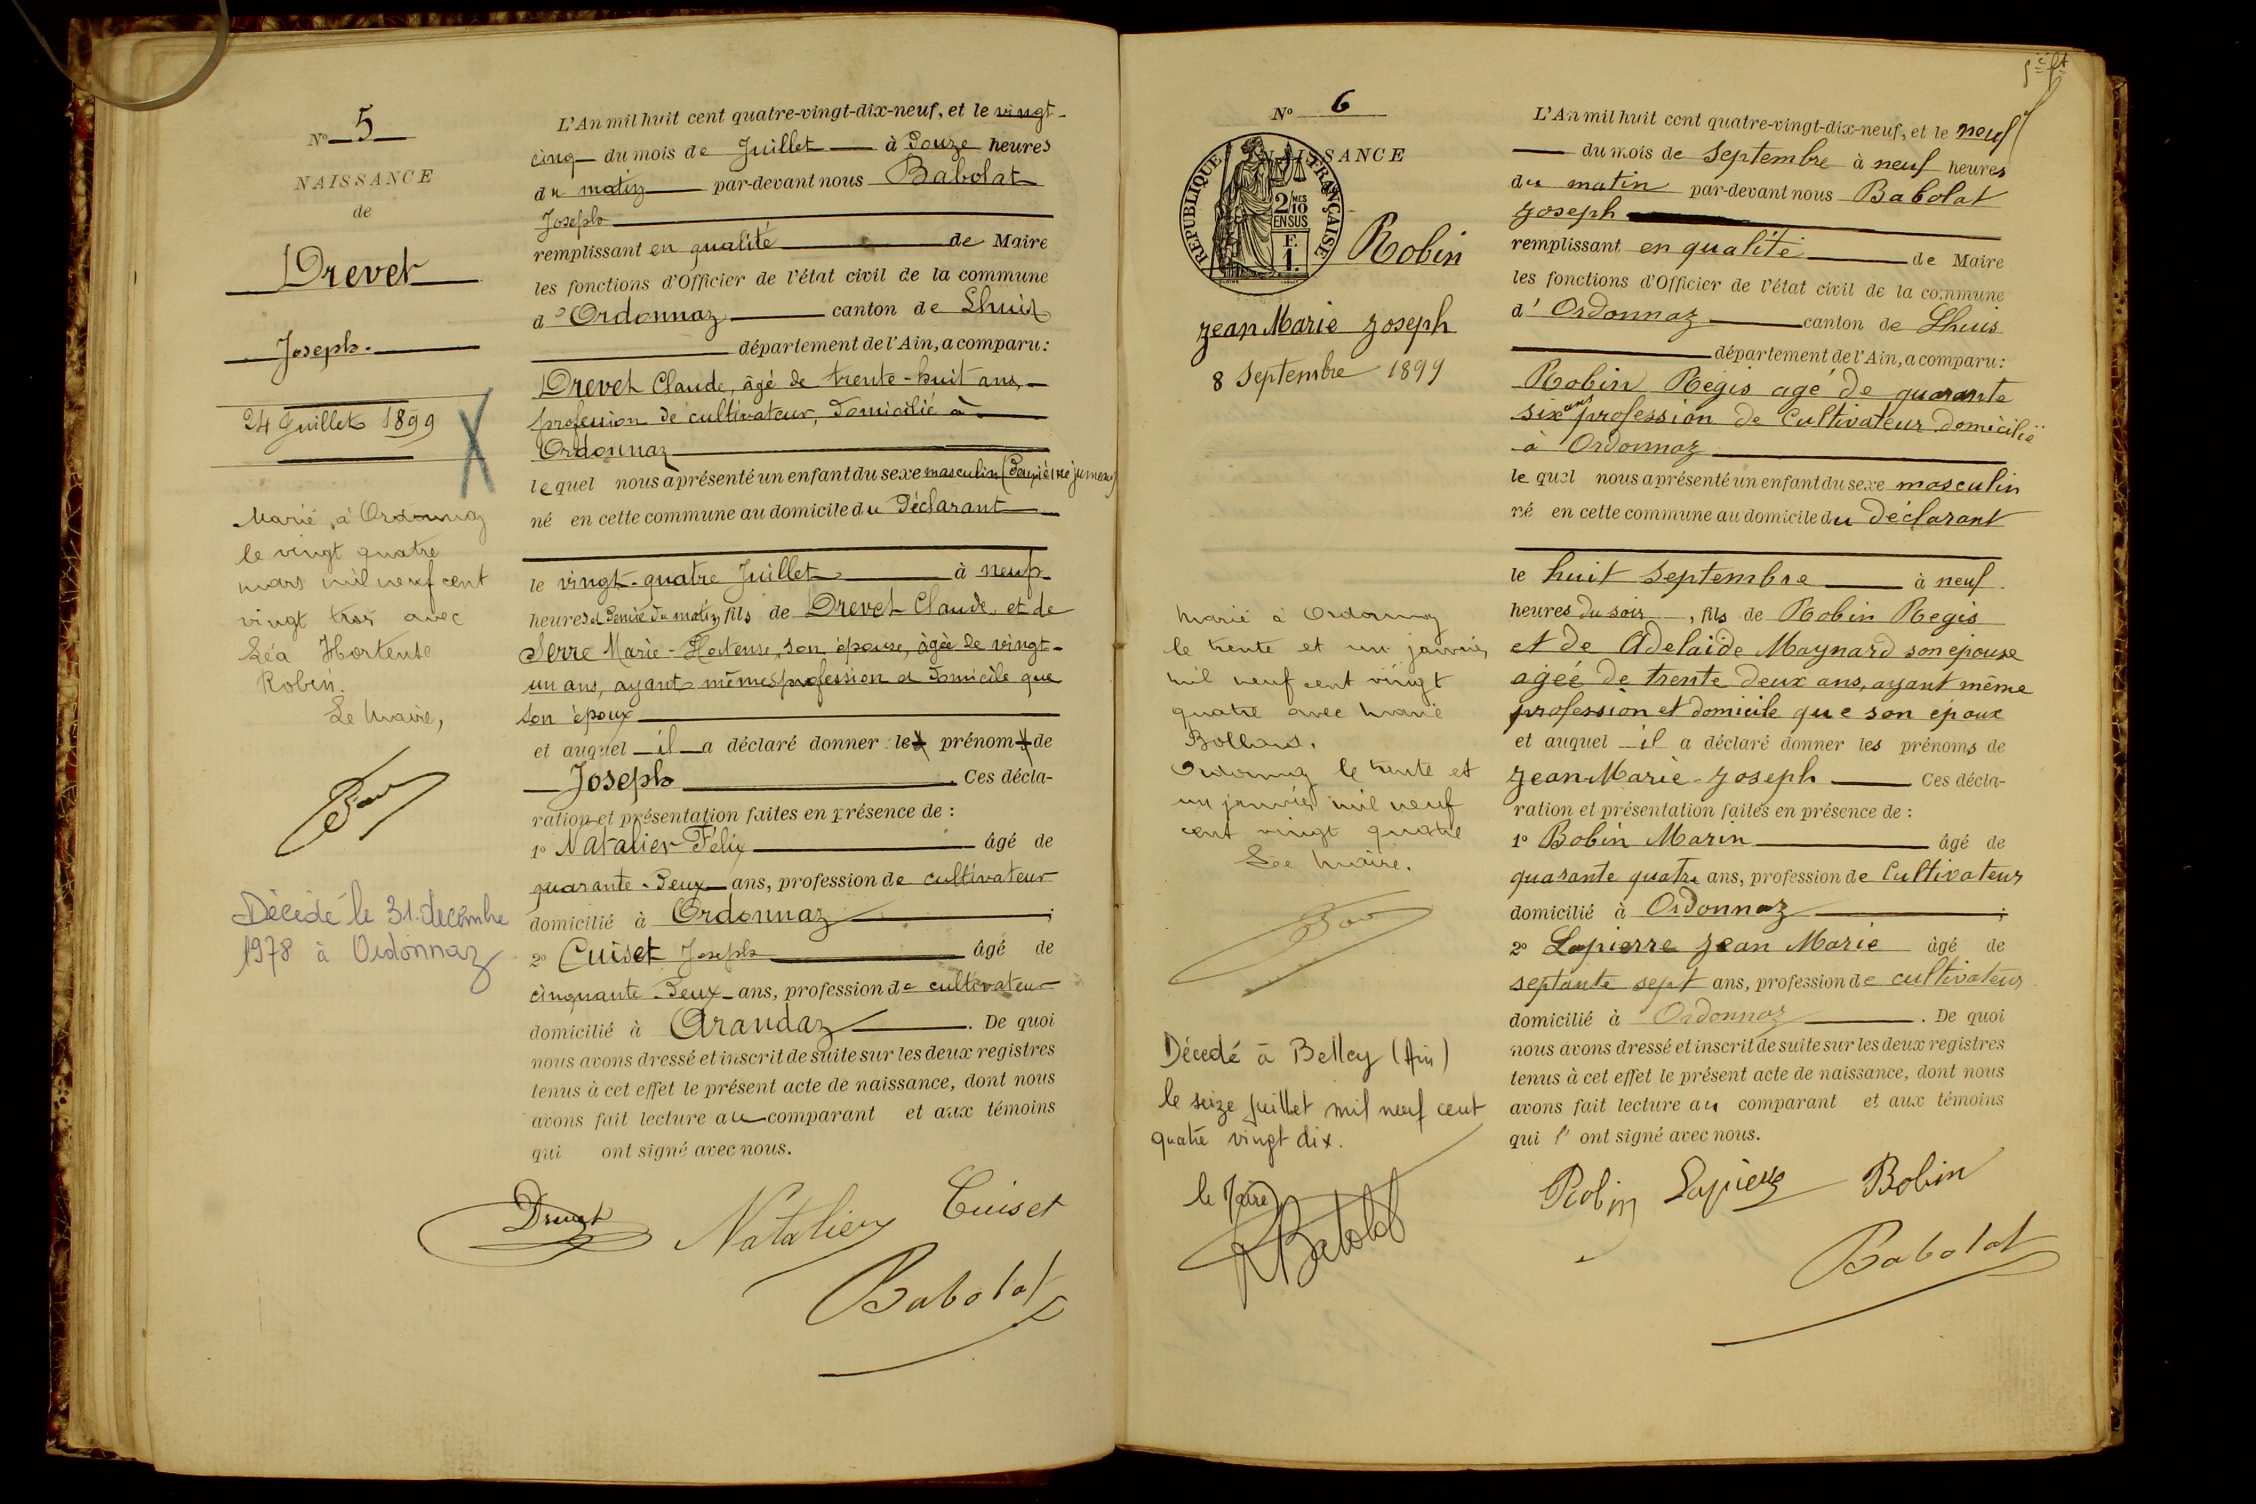 Nº 5
NAISSANCE
de
Drevet
Joseph.
24 Juillet 1899
Marié, à Ordonnaz
le vingt quatre
mars mil neuf cent
vingt trois avec
Léa Hortense
Robin.
Le Maire,
Décédé le 31 décembre
1978 à Ordonnaz
L'An mil huit cent quatre-vingt-dix-neuf, et le vingt-
cinq du mois de Juillet à Douze heures
du matin par-devant nous Babolat
Joseph
remplissant en qualité de Maire
les fonctions d'Officier de l'état civil de la commune
d'Ordonnaz canton de Lhuis
département de l'Ain, a comparu:
Drevet Claude, âgé de trente-huit ans,
profession de cultivateur, domicilié à
Ordonnaz
lequel nous a présenté un enfant du sexe masculin (Deuxième jumeau)
né en cette commune au domicile du Déclarant
le vingt-quatre Juillet à neuf
heures et demie du matin, fils de Drevet Claude, et de
Serre Marie-Hortense, son épouse, âgée de vingt-
un ans, ayant mêmes profession et domicile que
son époux
et auquel il a déclaré donner le prénom de
Joseph. Ces décla-
ration et présentation faites en présence de :
1º Natalier Félix âgé de
quarante-deux ans, profession de cultivateur
domicilié à Ordonnaz ;
2º Cuiset Joseph âgé de
cinquante-deux ans, profession de cultivateur
domicilié à Arandaz. De quoi
nous avons dressé et inscrit de suite sur les deux registres
tenus à cet effet le présent acte de naissance, dont nous
avons fait lecture au comparant et aux témoins
qui ont signé avec nous.
Drevet Natalier Cuiset
Babolat
5e ft
Nº 6
NAISSANCE
REPUBLIQUE FRANÇAISE
2/10 MES
EN SUS
F.
1.
Robin
Jean Marie Joseph
8 Septembre 1899
Marié à Ordonnaz
le trente et un janvier
mil neuf cent vingt
quatre avec Marie
Ordonnaz le trente et
un janvier mil neuf
cent vingt quatre
Le Maire.
Décédé à Belley (Ain)
le seize juillet mil neuf cent
quatre vingt dix.
le Maire
Babolat
L'An mil huit cent quatre-vingt-dix-neuf, et le neuf
du mois de Septembre à neuf heures
du matin par-devant nous Babolat
Joseph
remplissant en qualité de Maire
les fonctions d'Officier de l'état civil de la commune
d'Ordonnaz canton de Lhuis
département de l'Ain, a comparu:
Robin Régis agé de quarante
six ans profession de Cultivateur domicilié
à Ordonnaz
lequel nous a présenté un enfant du sexe masculin
né en cette commune au domicile du déclarant
le huit Septembre à neuf
heures du soir, fils de Robin Regis
et de Adelaïde Maynard son épouse
agée de trente deux ans, ayant même
profession et domicile que son époux
et auquel il a déclaré donner les prénoms de
Jean-Marie-Joseph Ces décla-
ration et présentation faites en présence de :
1º Bobin Marin âgé de
quarante quatre ans, profession de Cultivateur
domicilié à Ordonnaz ;
2º Lapierre Jean Marie âgé de
septante sept ans, profession de cultivateur
domicilié à Ordonnaz. De quoi
nous avons dressé et inscrit de suite sur les deux registres
tenus à cet effet le présent acte de naissance, dont nous
avons fait lecture au comparant et aux témoins
qui l' ont signé avec nous.
Robin Lapierre Bobin
Babolat